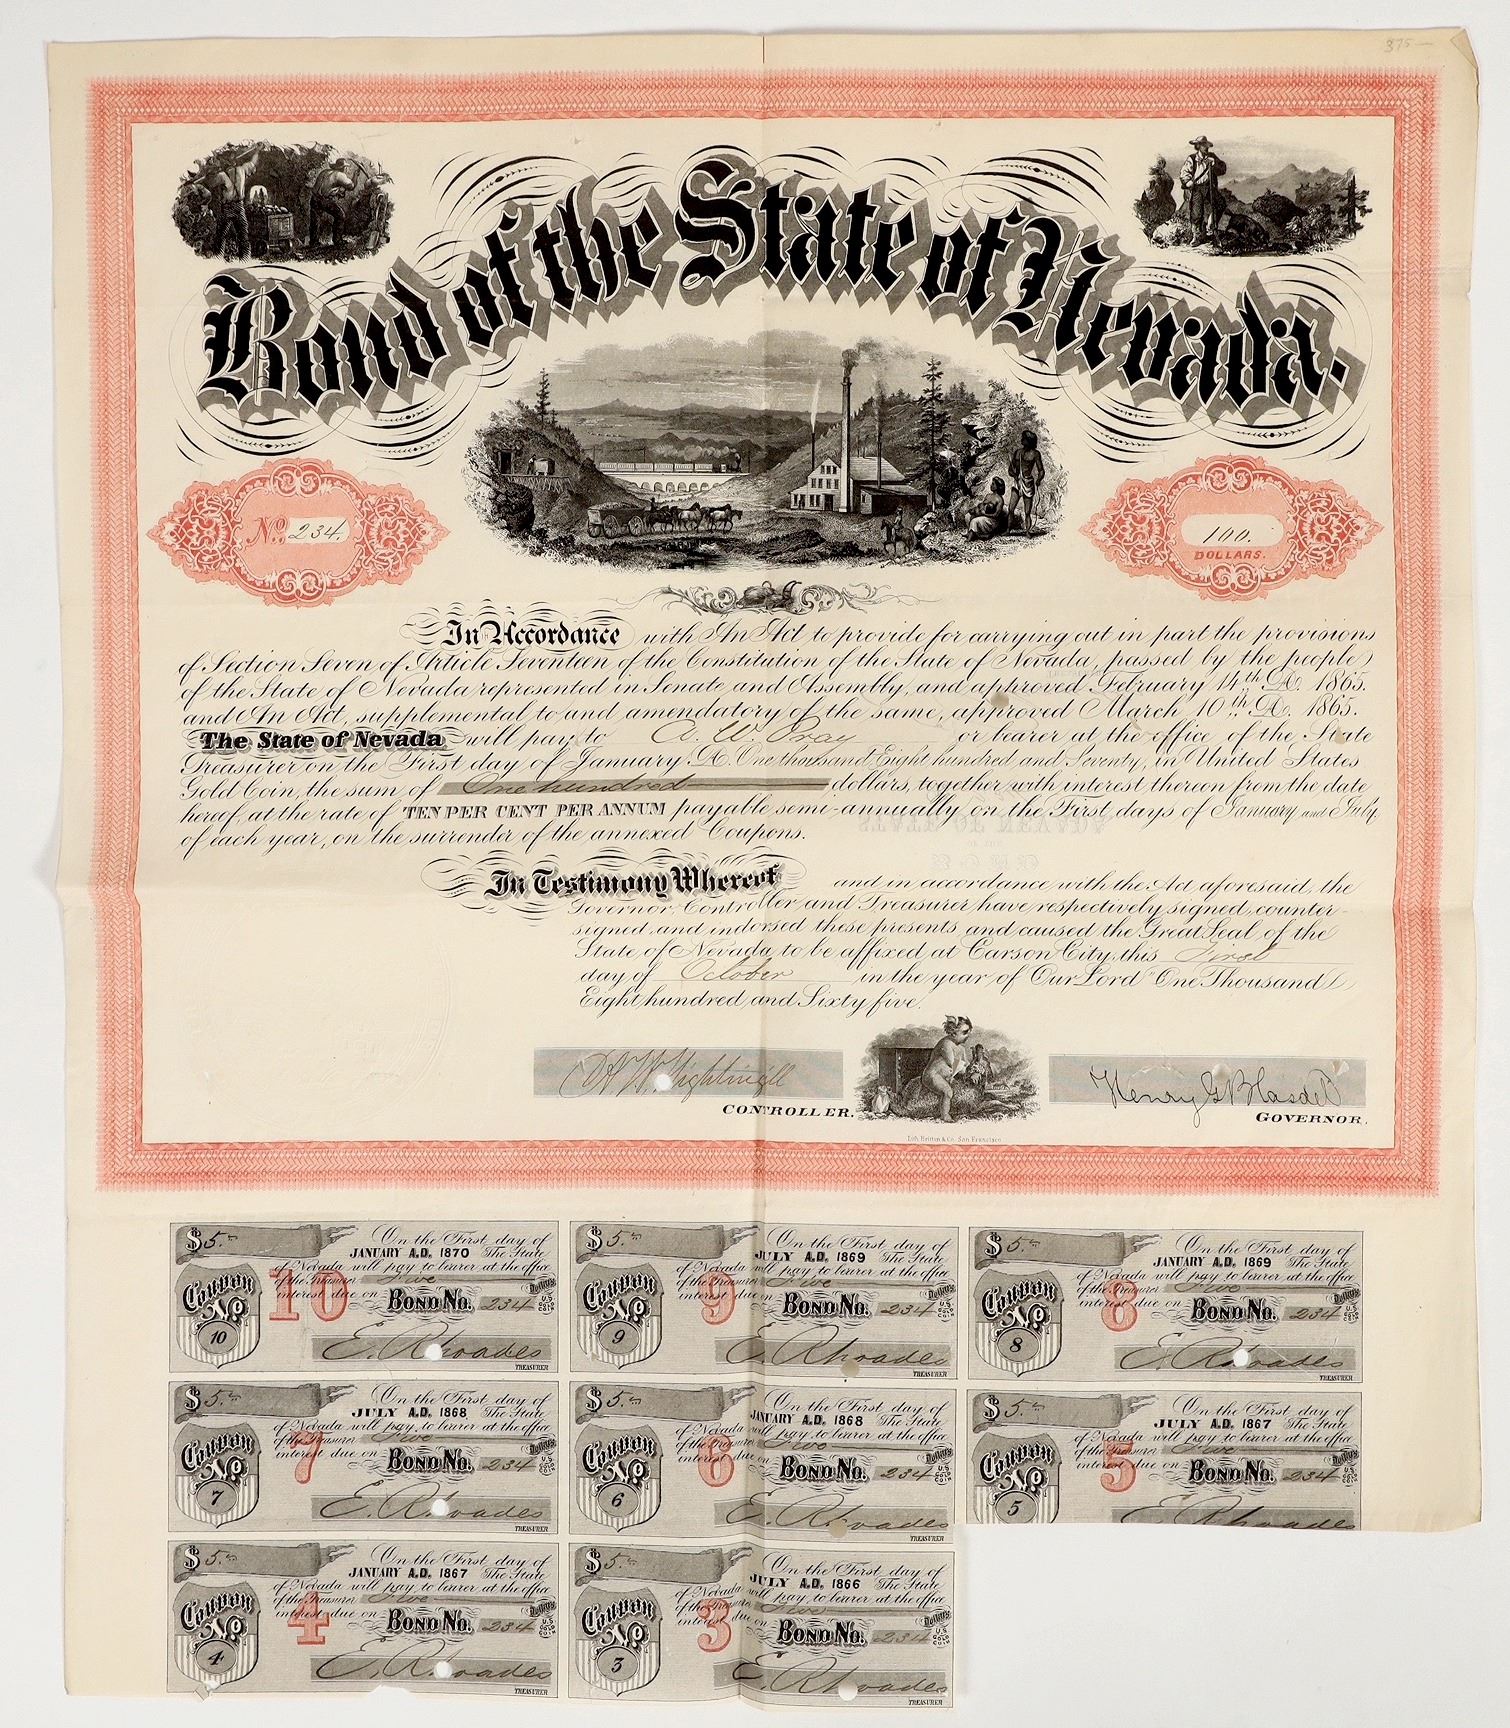 375—
Bond of the State of Nevada.
No. 234.
100.
DOLLARS.
In Accordance with An Act to provide for carrying out in part the provisions
of Section Seven of Article Seventeen of the Constitution of the State of Nevada, passed by the people
of the State of Nevada represented in Senate and Assembly, and approved February 14th A.D. 1865.
and An Act, supplemental to and amendatory of the same, approved March 10th A.D. 1865.
The State of Nevada will pay to A. W. Pray or bearer at the office of the State
Treasurer on the First day of January A.D. One thousand Eight hundred and Seventy, in United States
Gold Coin, the sum of One hundred dollars, together with interest thereon from the date
hereof, at the rate of TEN PER CENT PER ANNUM payable semi-annually on the First days of January and July,
of each year, on the surrender of the annexed Coupons.
In Testimony Whereof and in accordance with the Act aforesaid, the
Governor, Controller and Treasurer have respectively signed, counter-
signed and indorsed these presents, and caused the Great Seal of the
State of Nevada to be affixed at Carson City, this First
day of October in the year of Our Lord One Thousand
Eight hundred and Sixty five.
A W Nightingill
CONTROLLER.
Henry G Blasdel
GOVERNOR.
Lith. Britton & Co. San Francisco
$5. On the First day of
JANUARY A.D. 1870 The State
of Nevada will pay to bearer at the office
of the Treasurer Five Dollars
interest due on BOND NO. 234 U.S. GOLD COIN
Coupon No. 10
10
E. Rhoades
TREASURER
$5. On the First day of
JULY A.D. 1869 The State
of Nevada will pay to bearer at the office
of the Treasurer Five
interest due on BOND NO. 234 U.S. GOLD COIN
Coupon No. 9
9
E. Rhoades
TREASURER
$5. On the First day of
JANUARY A.D. 1869 The State
of Nevada will pay to bearer at the office
of the Treasurer Five Dollars
interest due on BOND NO. 234 U.S. GOLD COIN
Coupon No. 8
8
E. Rhoades
TREASURER
$5. On the First day of
JULY A.D. 1868 The State
of Nevada will pay to bearer at the office
of the Treasurer Five Dollars
interest due on BOND NO. 234 U.S. GOLD COIN
Coupon No. 7
7
E. Rhoades
TREASURER
$5. On the First day of
JANUARY A.D. 1868 The State
of Nevada will pay to bearer at the office
of the Treasurer Five Dollars
interest due on BOND NO. 234 U.S. GOLD COIN
Coupon No. 6
6
E. Rhoades
TREASURER
$5. On the First day of
JULY A.D. 1867 The State
of Nevada will pay to bearer at the office
of the Treasurer Five Dollars
interest due on BOND NO. 234 U.S. GOLD COIN
Coupon No. 5
5
E. Rhoades
$5. On the First day of
JANUARY A.D. 1867 The State
of Nevada will pay to bearer at the office
of the Treasurer Five Dollars
interest due on BOND NO. 234 U.S. GOLD COIN
Coupon No. 4
4
E. Rhoades
TREASURER
$5. On the First day of
JULY A.D. 1866 The State
of Nevada will pay to bearer at the office
of the Treasurer Five Dollars
interest due on BOND NO. 234 U.S. GOLD COIN
Coupon No. 3
3
E. Rhoades
TREASURER